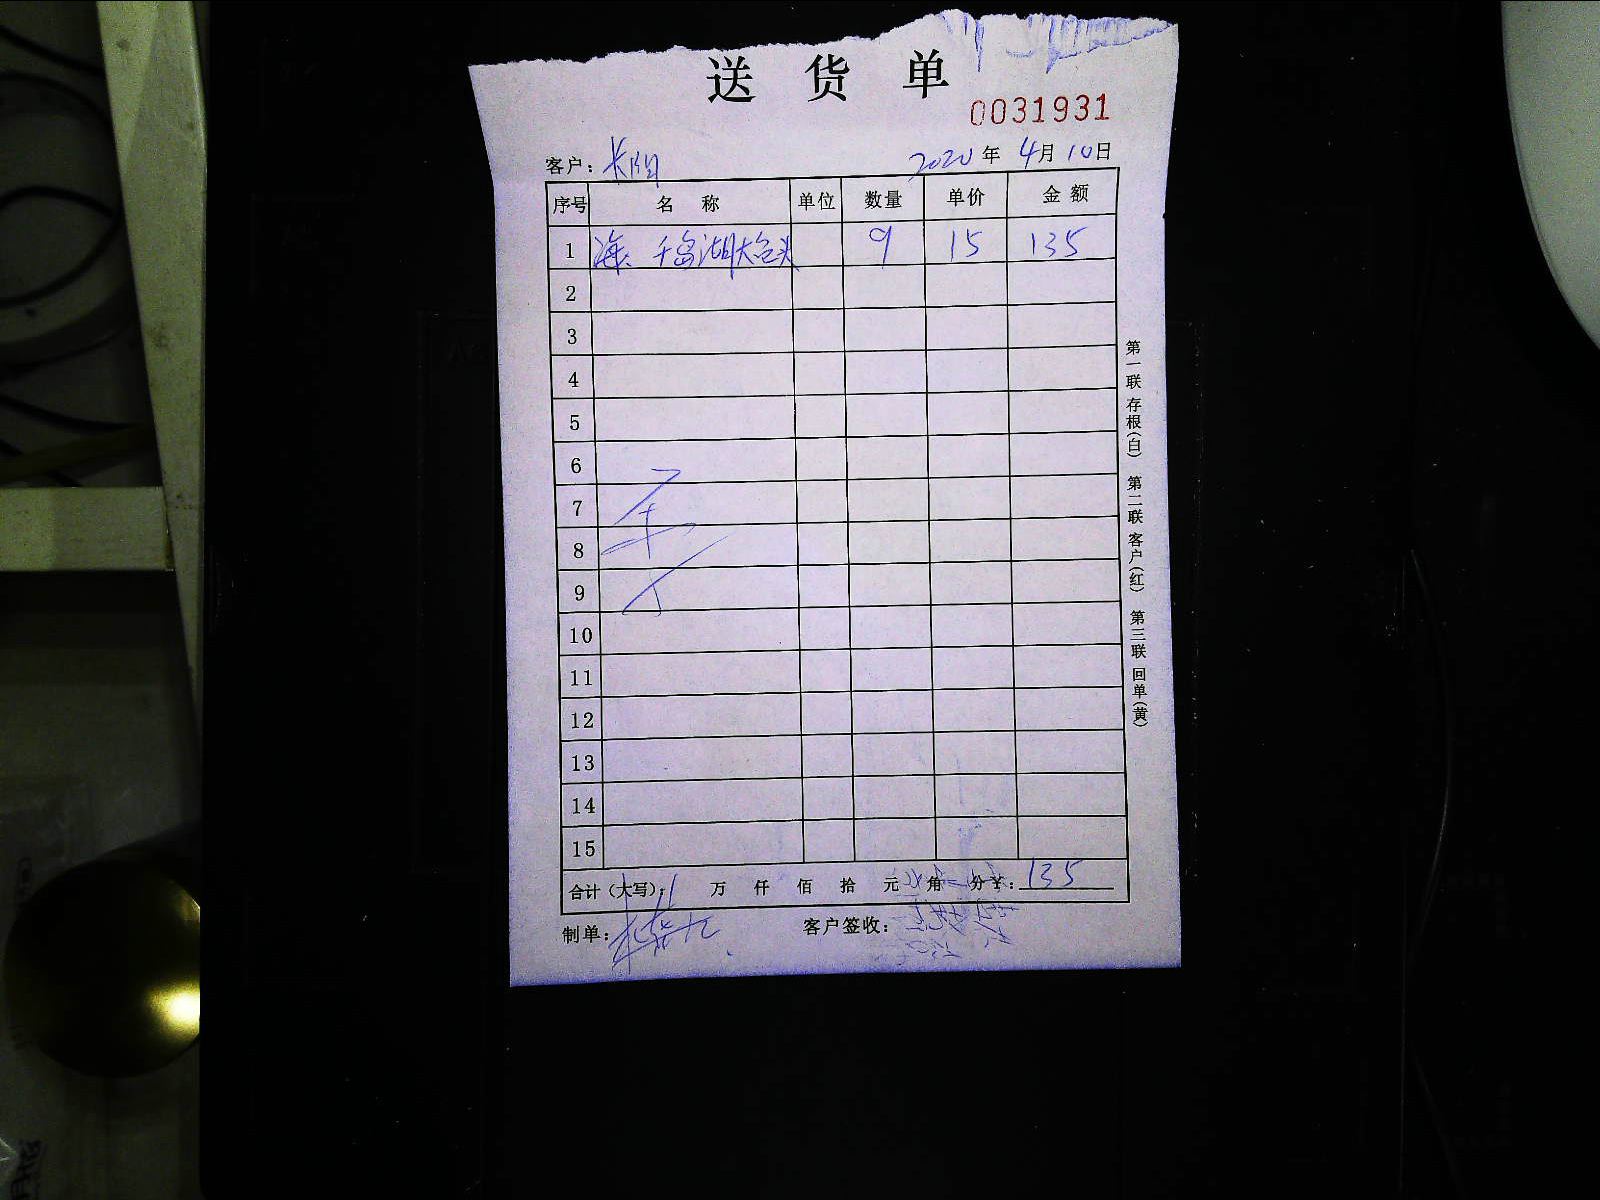 送 货 单
0031931
客户: 长阳 2020年 4月 10日
序号 名 称 单位 数量 单价 金 额
1 海、千岛湖大包头 9 15 135
2
3
4
5
6
7
8
9
10
11
12
13
14
15
合计(大写): 万 仟 佰 拾 元 角 分¥: 135
制单: 客户签收:
第一联 存根(白) 第二联 客户(红) 第三联 回单(黄)